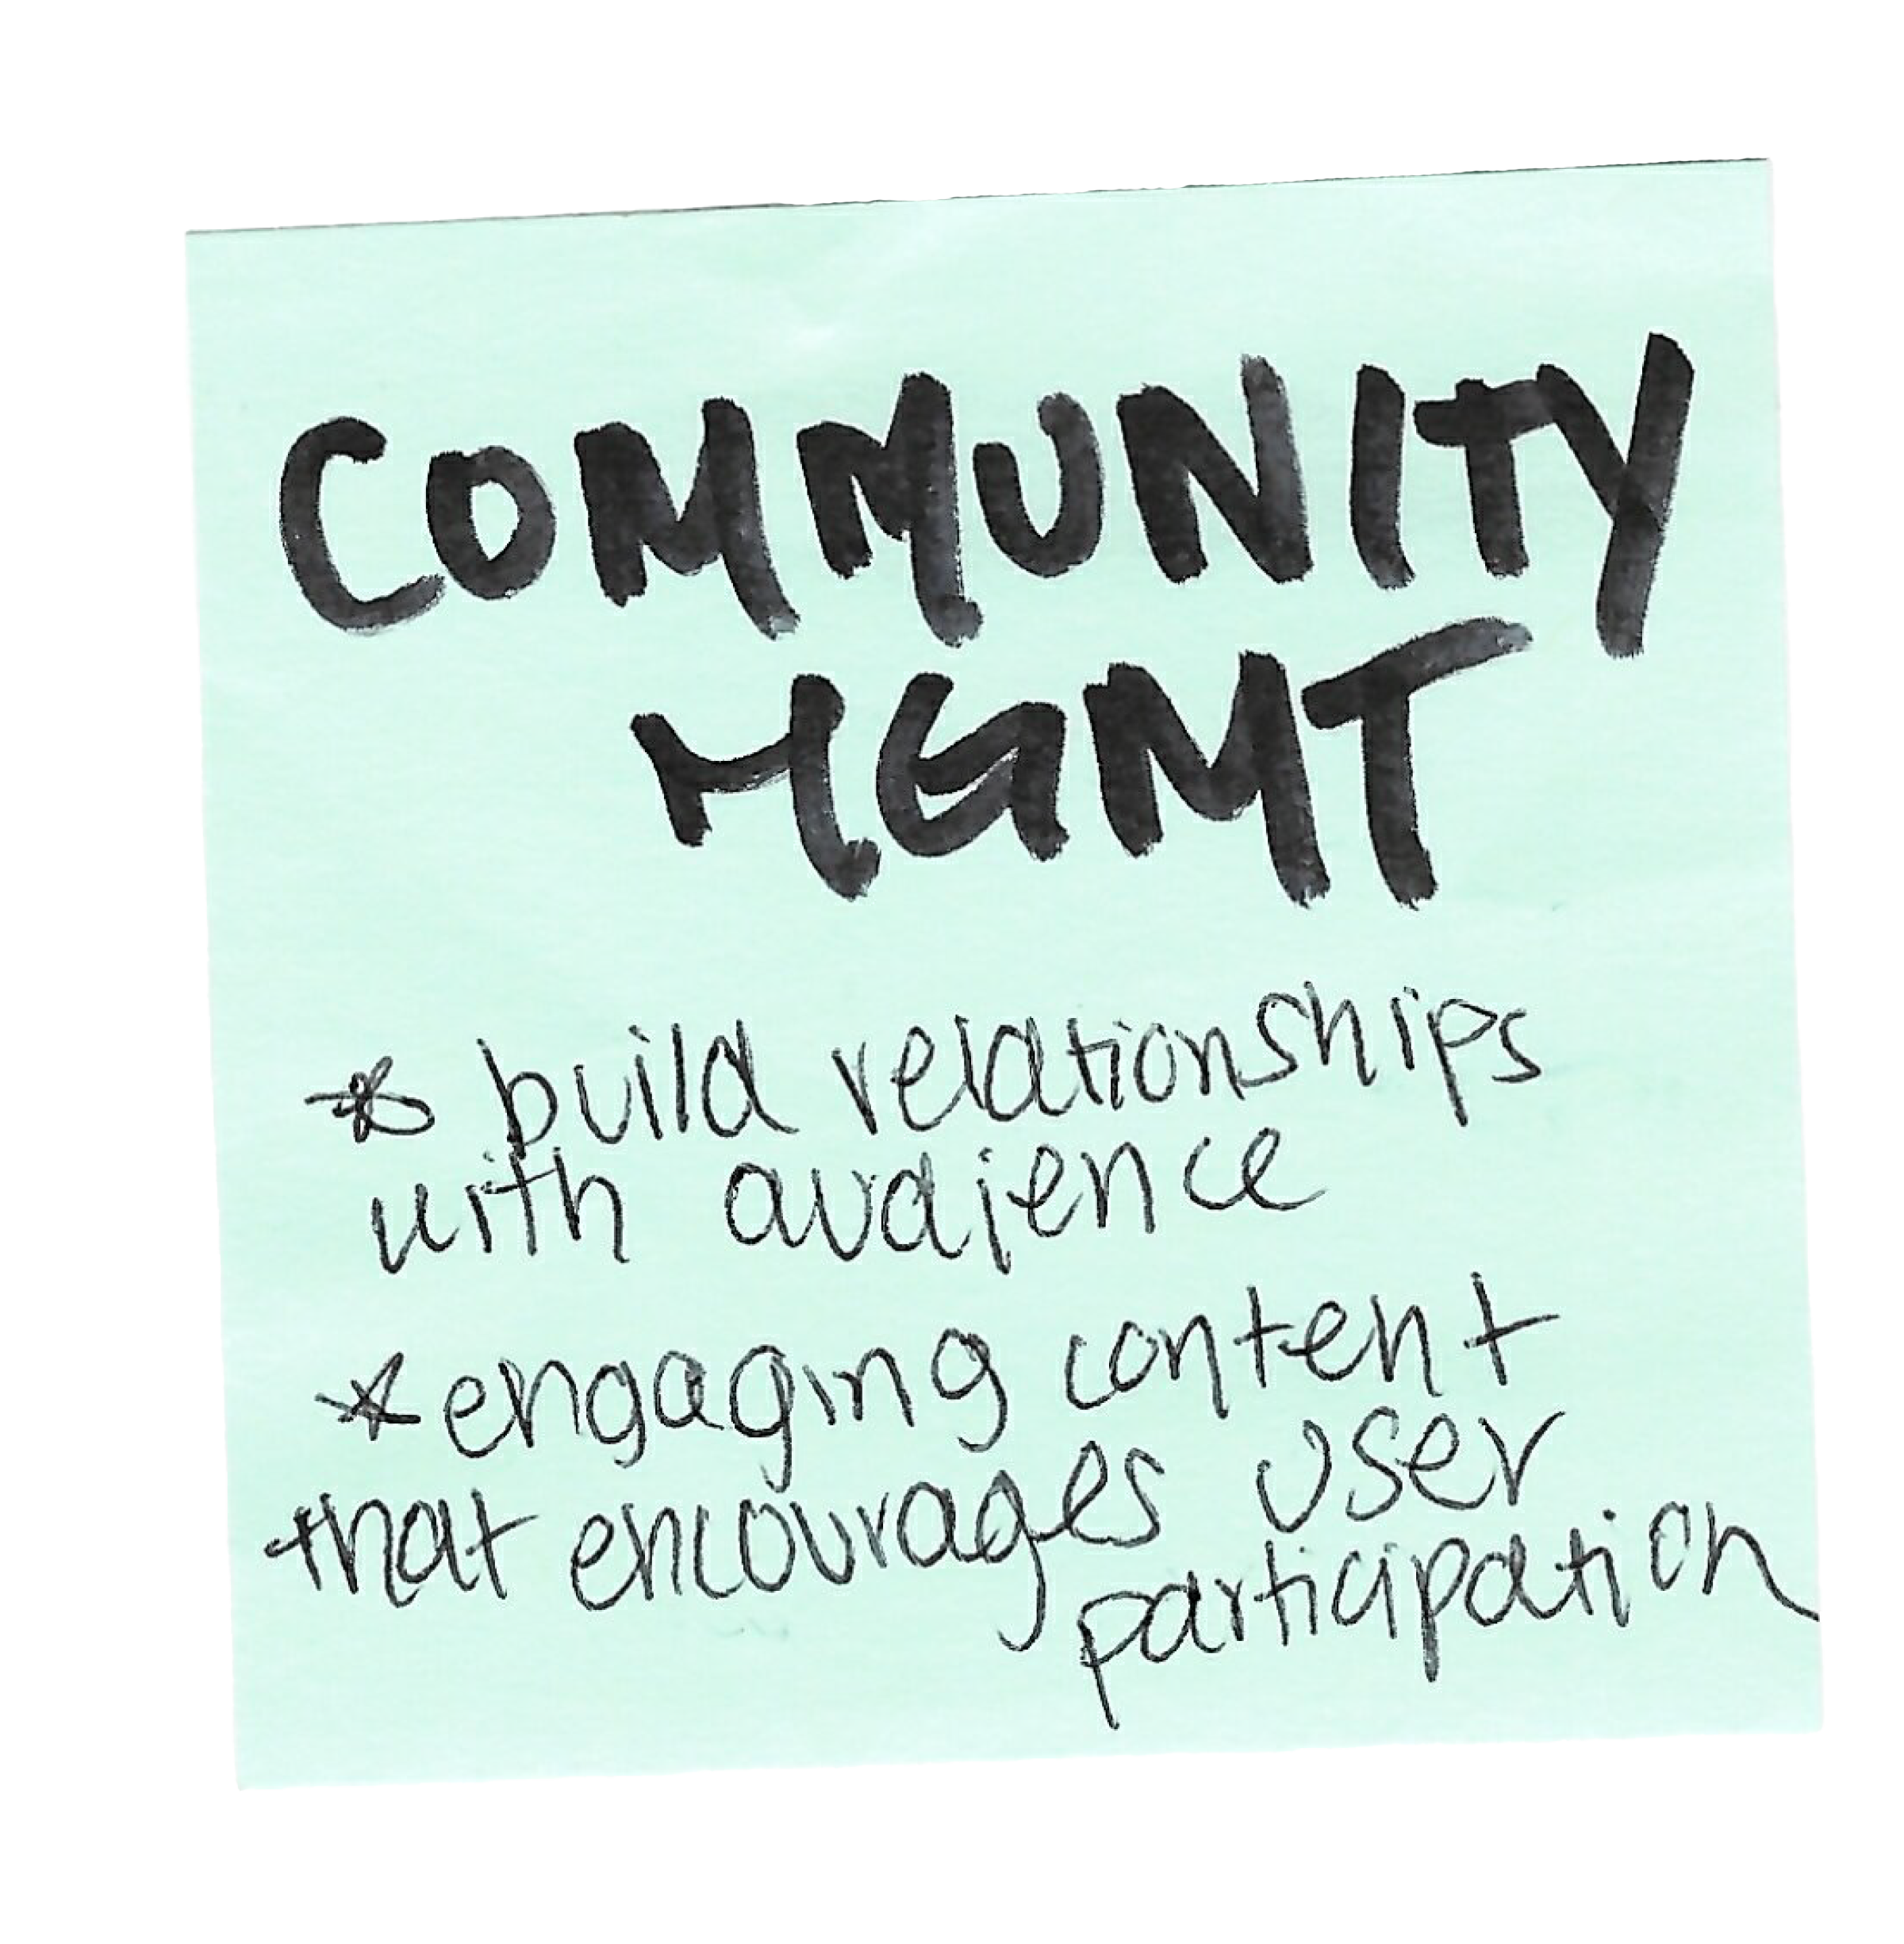 COMMUNITY
MGMT
* build relationships
with audience
* engaging content
that encourages user
participation